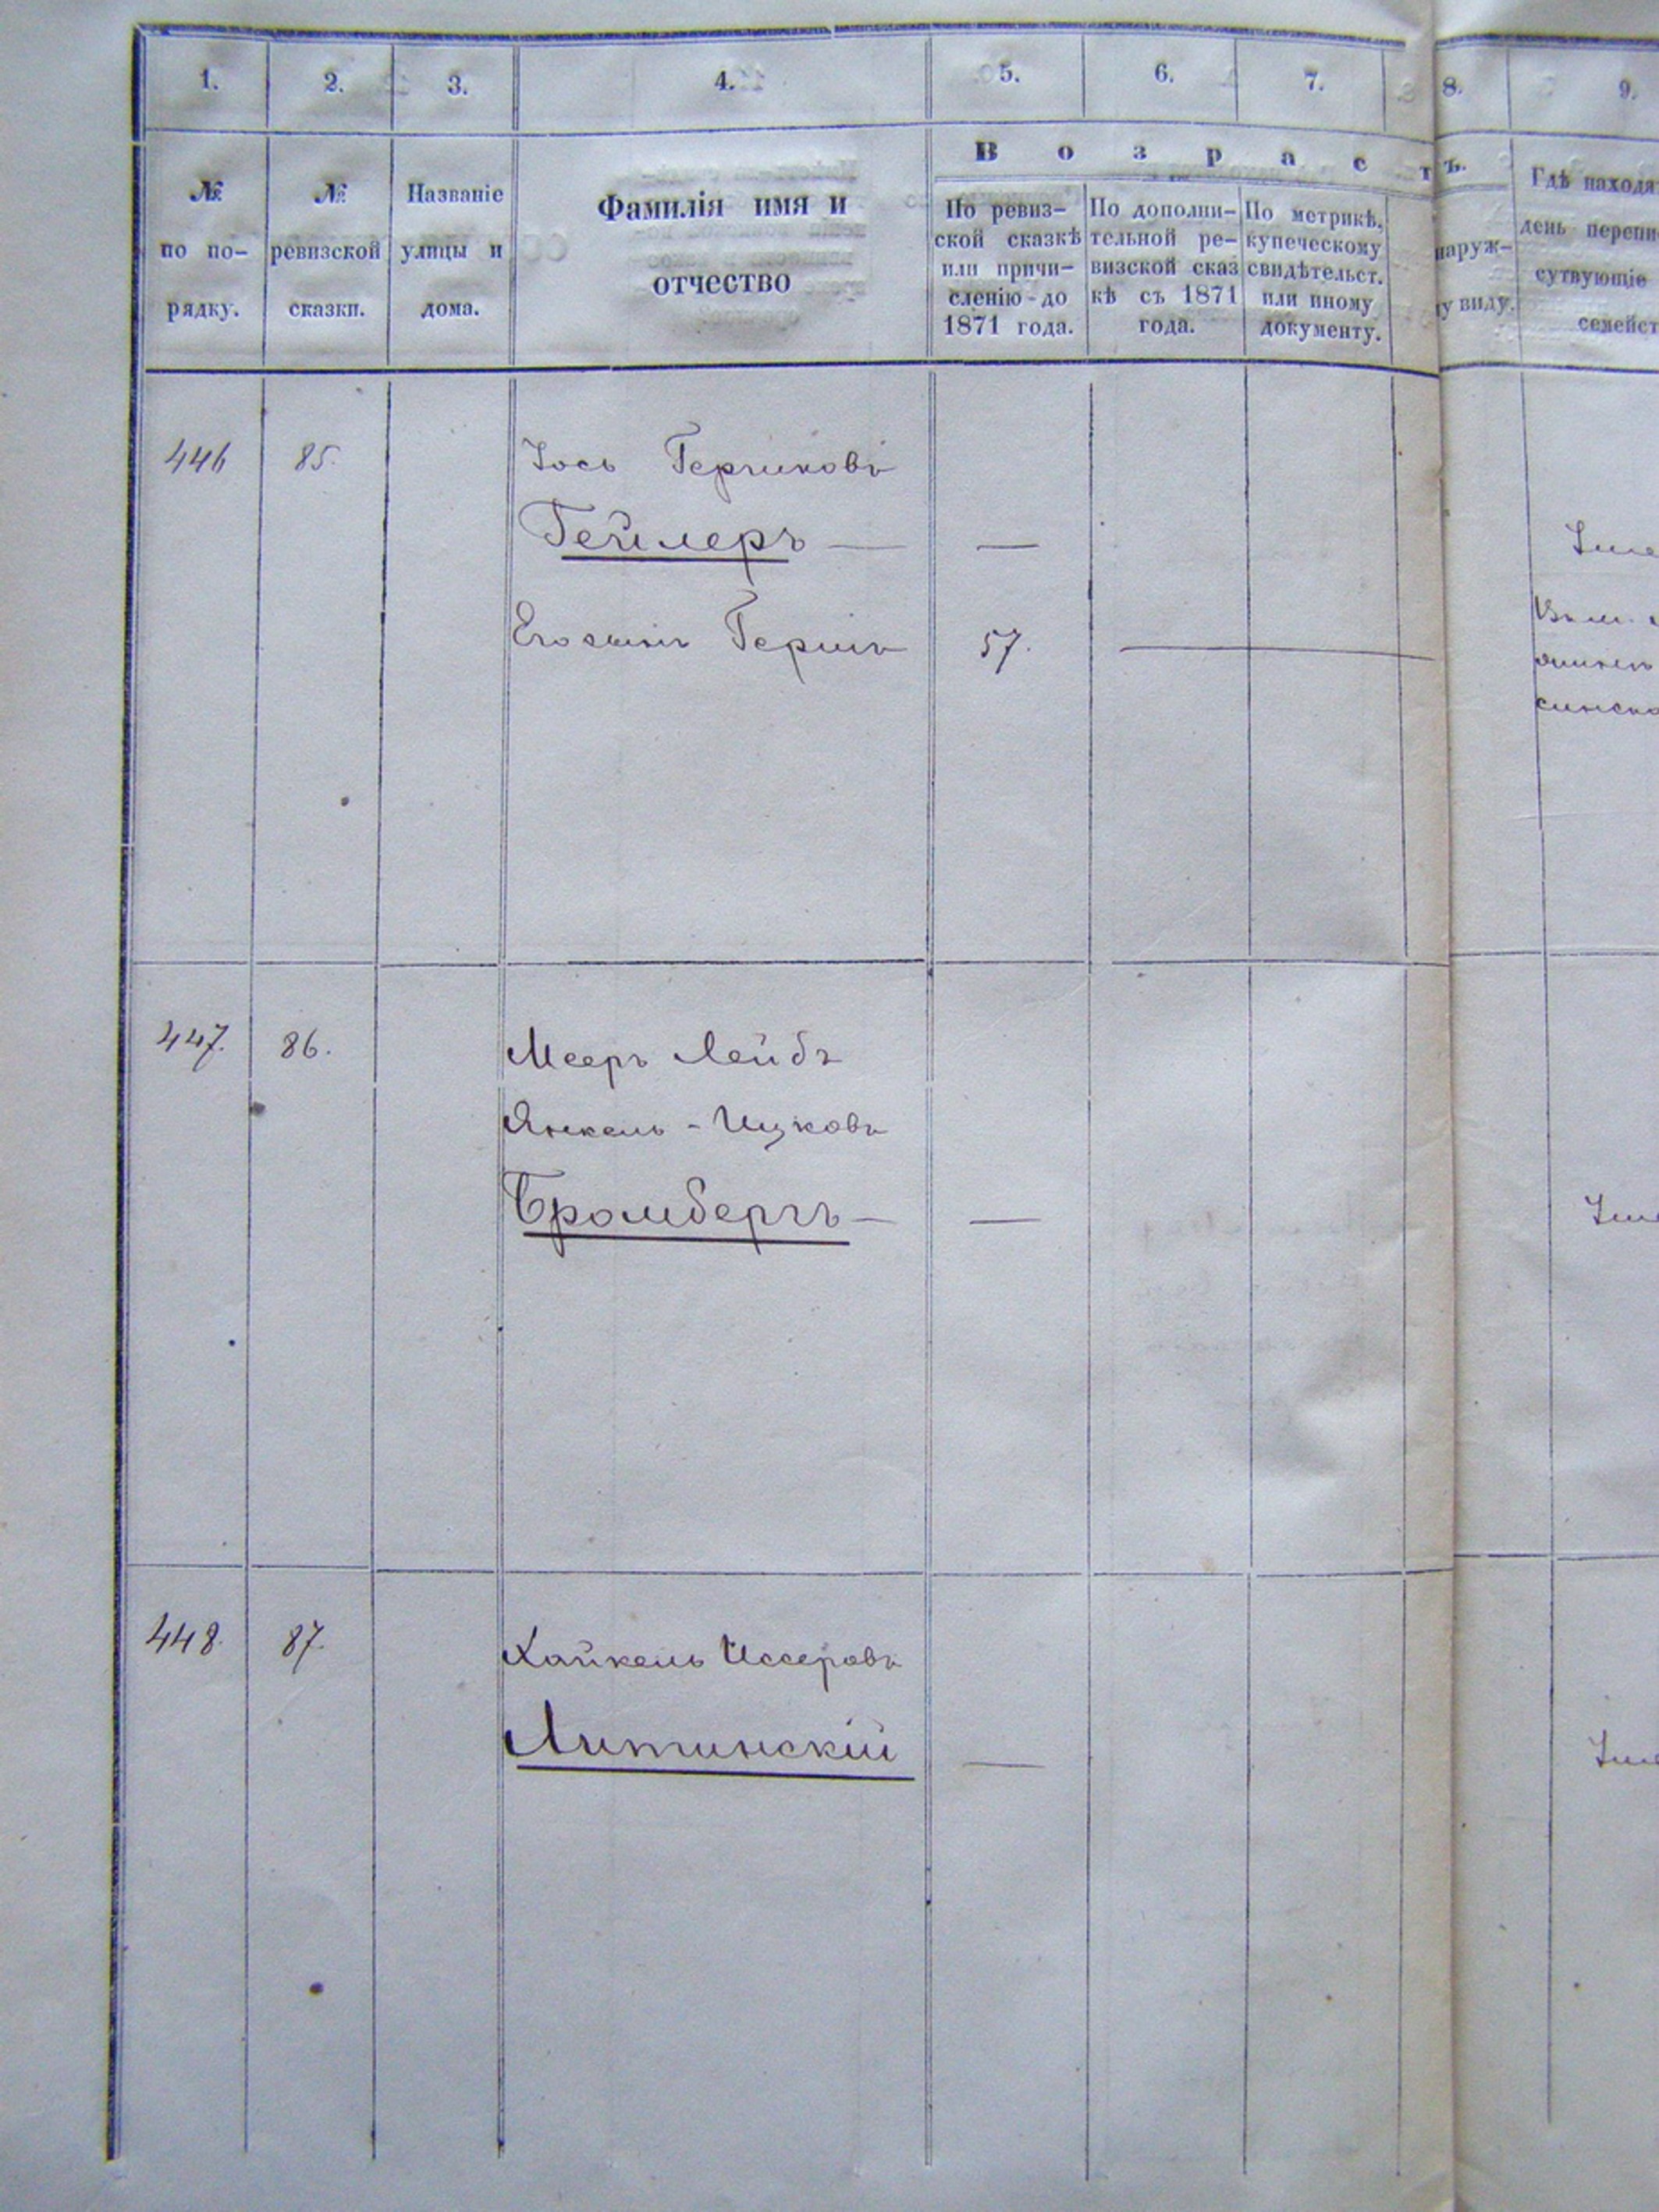 1. 2. 3. 4. 5. 6. 7. 8. 9.
В о з р а с т ъ.
№ по по- рядку.
№ ревизской сказки.
Названіе улицы и дома.
Фамилія имя и
отчество
По ревиз-
ской сказкѣ
или причи-
сленію-до
1871 года.
По дополни-
тельной ре-
визской сказ
кѣ съ 1871
года.
По метрикѣ,
купеческому
свидѣтельст.
или иному
документу.
наруж-
у виду.
Гдѣ находя
день перепи
сутвующіе
семейст
446 85. Іось Гершковъ
Гейлеръ —
Его сынъ Гершъ 57.
447. 86. Мееръ Лейбъ
Янкель - Ицковъ
Бромбергъ —
448. 87. Хайкель Иссеровъ
Литинскій